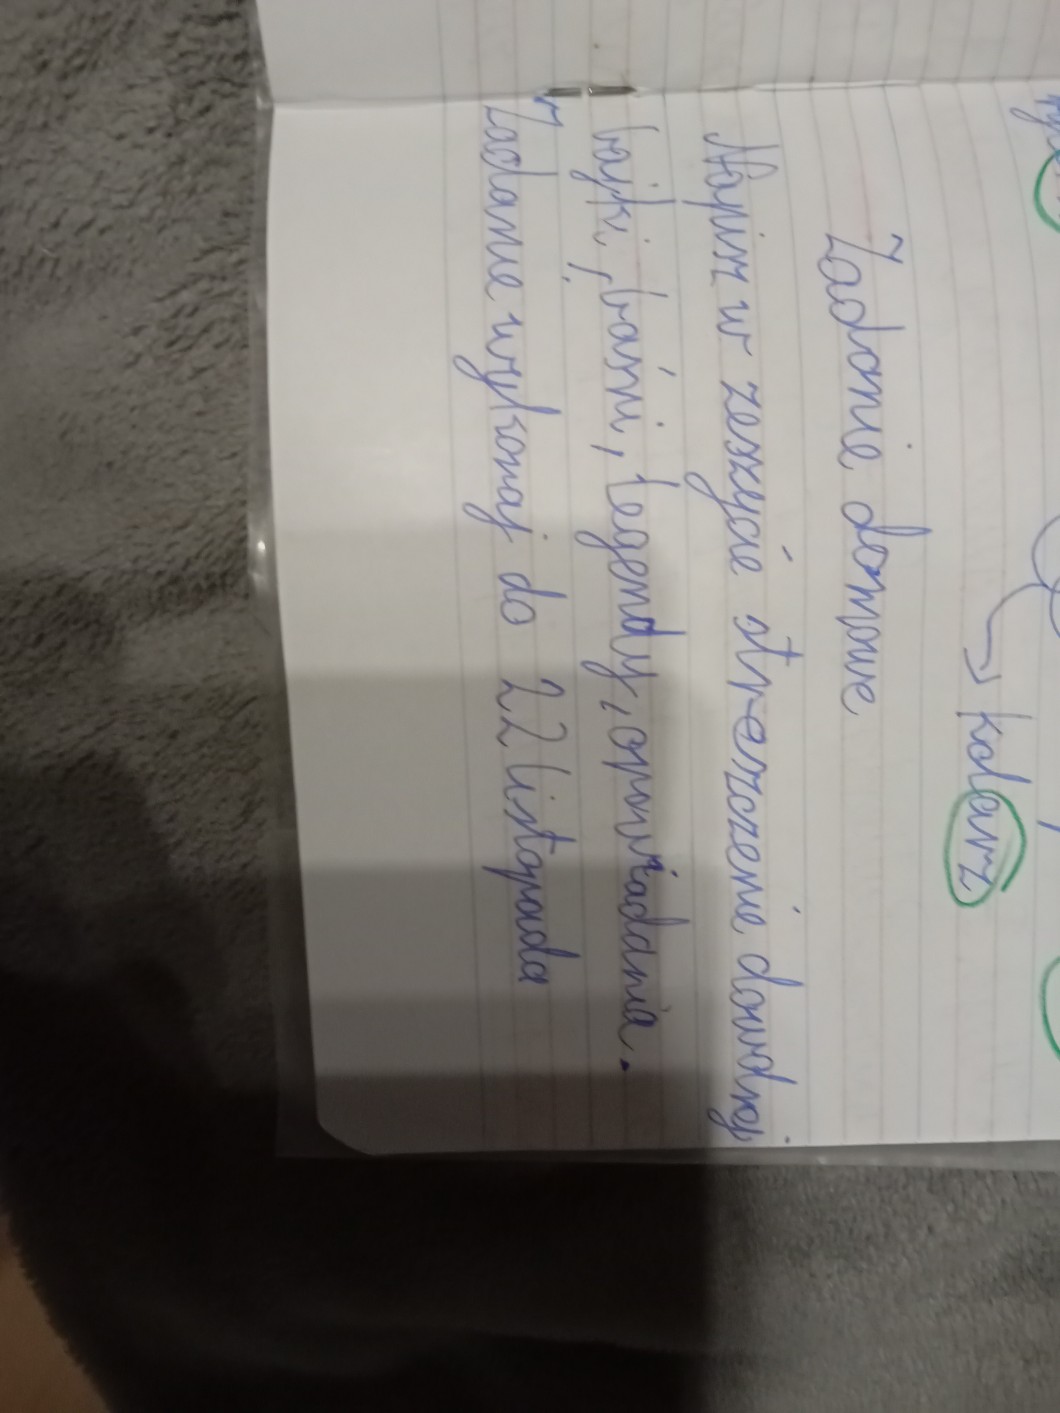 → kolarz
Zadanie domowe
Napisz w zeszycie streszczenie dowolnej
bajki, baśni, legendy, opowiadania.
Zadanie wykonaj do 22 listopada